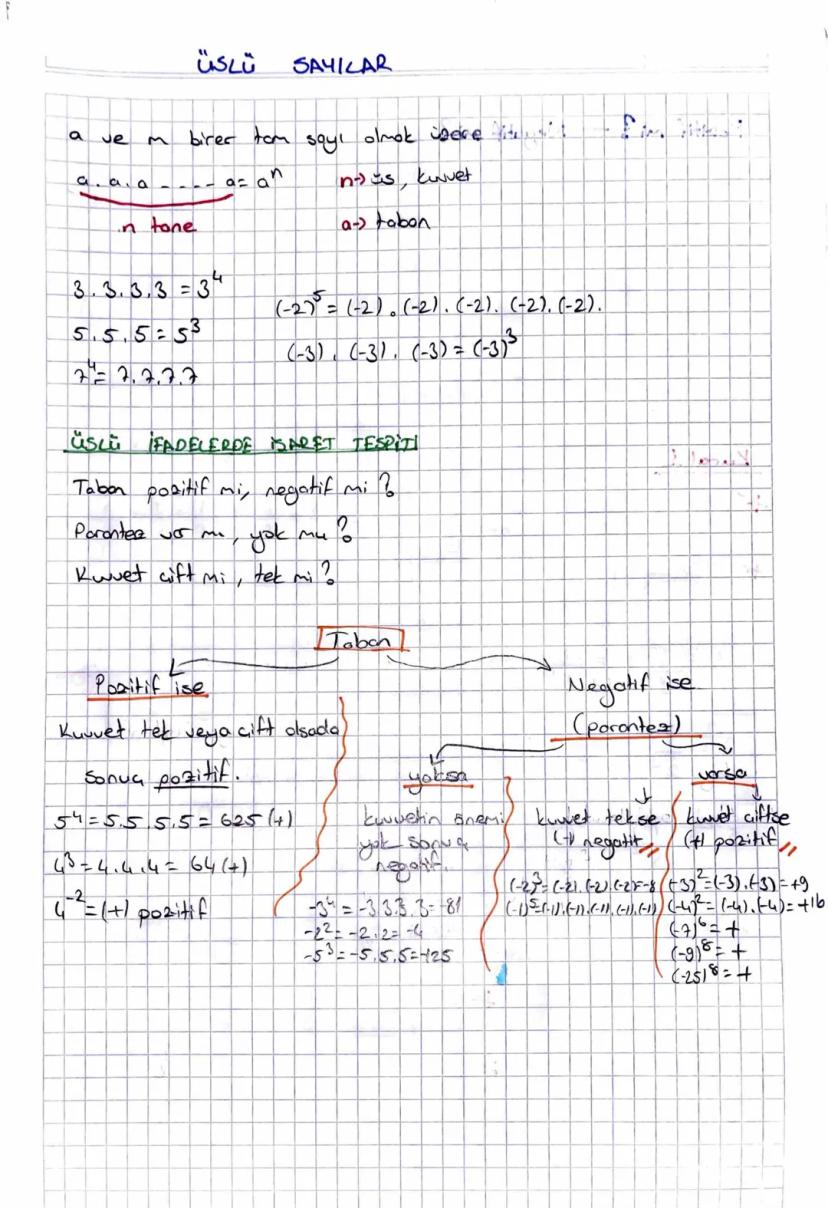 ÜSLÜ SAYILAR
a ve m birer tam sayı olmak üzere
a.a.a ----- a = aⁿ
n tane
n → üs, kuvvet
a → taban
3.3.3.3 = 3⁴
5.5.5 = 5³
7⁴ = 7.7.7.7
(-2)⁵ = (-2).(-2).(-2).(-2).(-2).
(-3).(-3).(-3) = (-3)³
ÜSLÜ İFADELERDE İŞARET TESPİTİ
Taban pozitif mi, negatif mi?
Parantez var mı, yok mu?
Kuvvet çift mi, tek mi?
Taban
Pozitif ise
Kuvvet tek veya çift olsada
sonuç pozitif.
5⁴ = 5.5.5.5 = 625 (+)
4³ = 4.4.4 = 64 (+)
4⁻² = (+) pozitif
Negatif ise
(parantez)
yoksa
kuvvetin önemi
yok sonuç
negatif.
-3⁴ = -3.3.3.3 = -81
-2² = -2.2 = -4
-5³ = -5.5.5 = -125
varsa
kuvvet tekse
(-) negatif
(-2)³ = (-2).(-2).(-2) = -8
(-1)⁵ = (-1).(-1).(-1).(-1).(-1)
kuvvet çiftse
(+) pozitif
(-3)² = (-3).(-3) = +9
(-4)² = (-4).(-4) = +16
(-7)⁶ = +
(-9)⁸ = +
(-25)⁸ = +